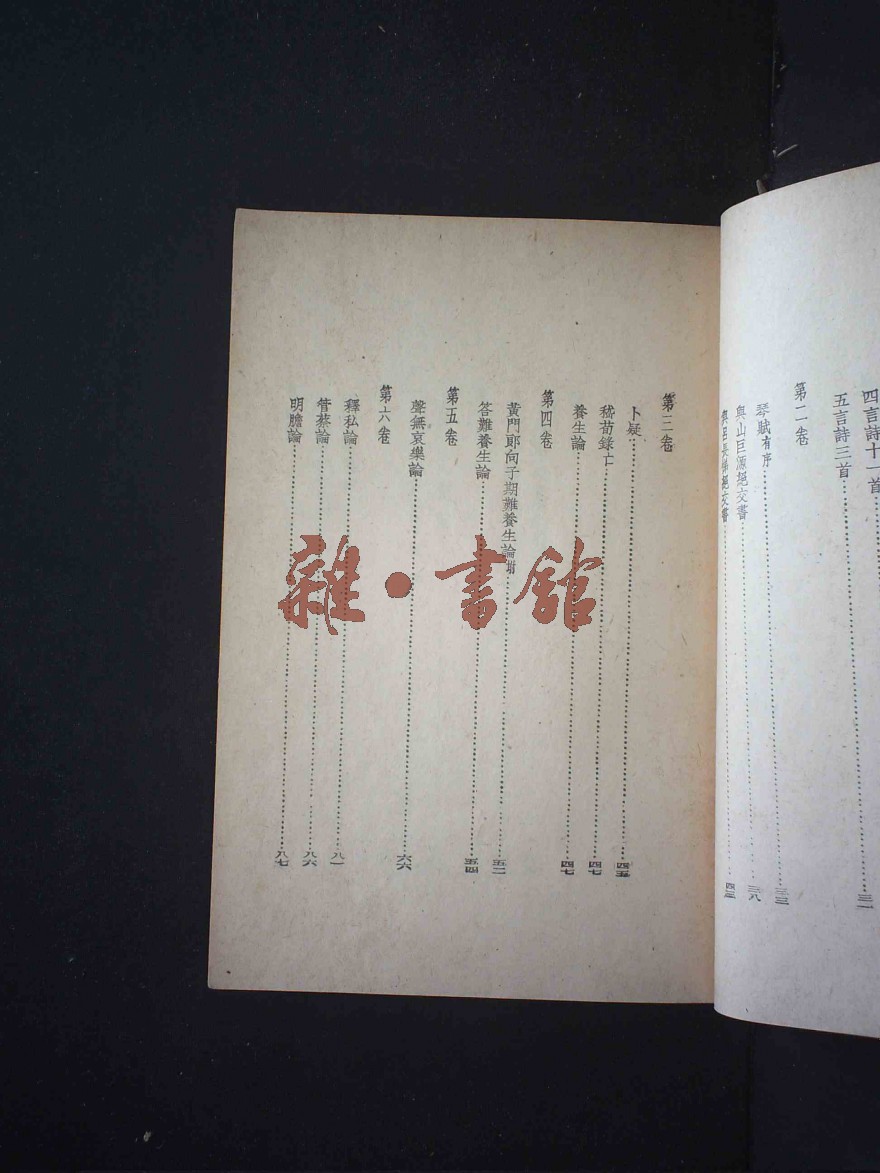 四言詩十一首
三一
五言詩三首
第二卷
琴賦有序
三三
與山巨源絕交書
三八
與呂長悌絕交書
四三
第三卷
卜疑
四五
嵇荀錄亡
四七
養生論
四七
第四卷
黃門郎向子期難養生論附
五二
答難養生論
五四
第五卷
聲無哀樂論
六六
第六卷
釋私論
八一
管蔡論
八六
明膽論
八七
雜·書館